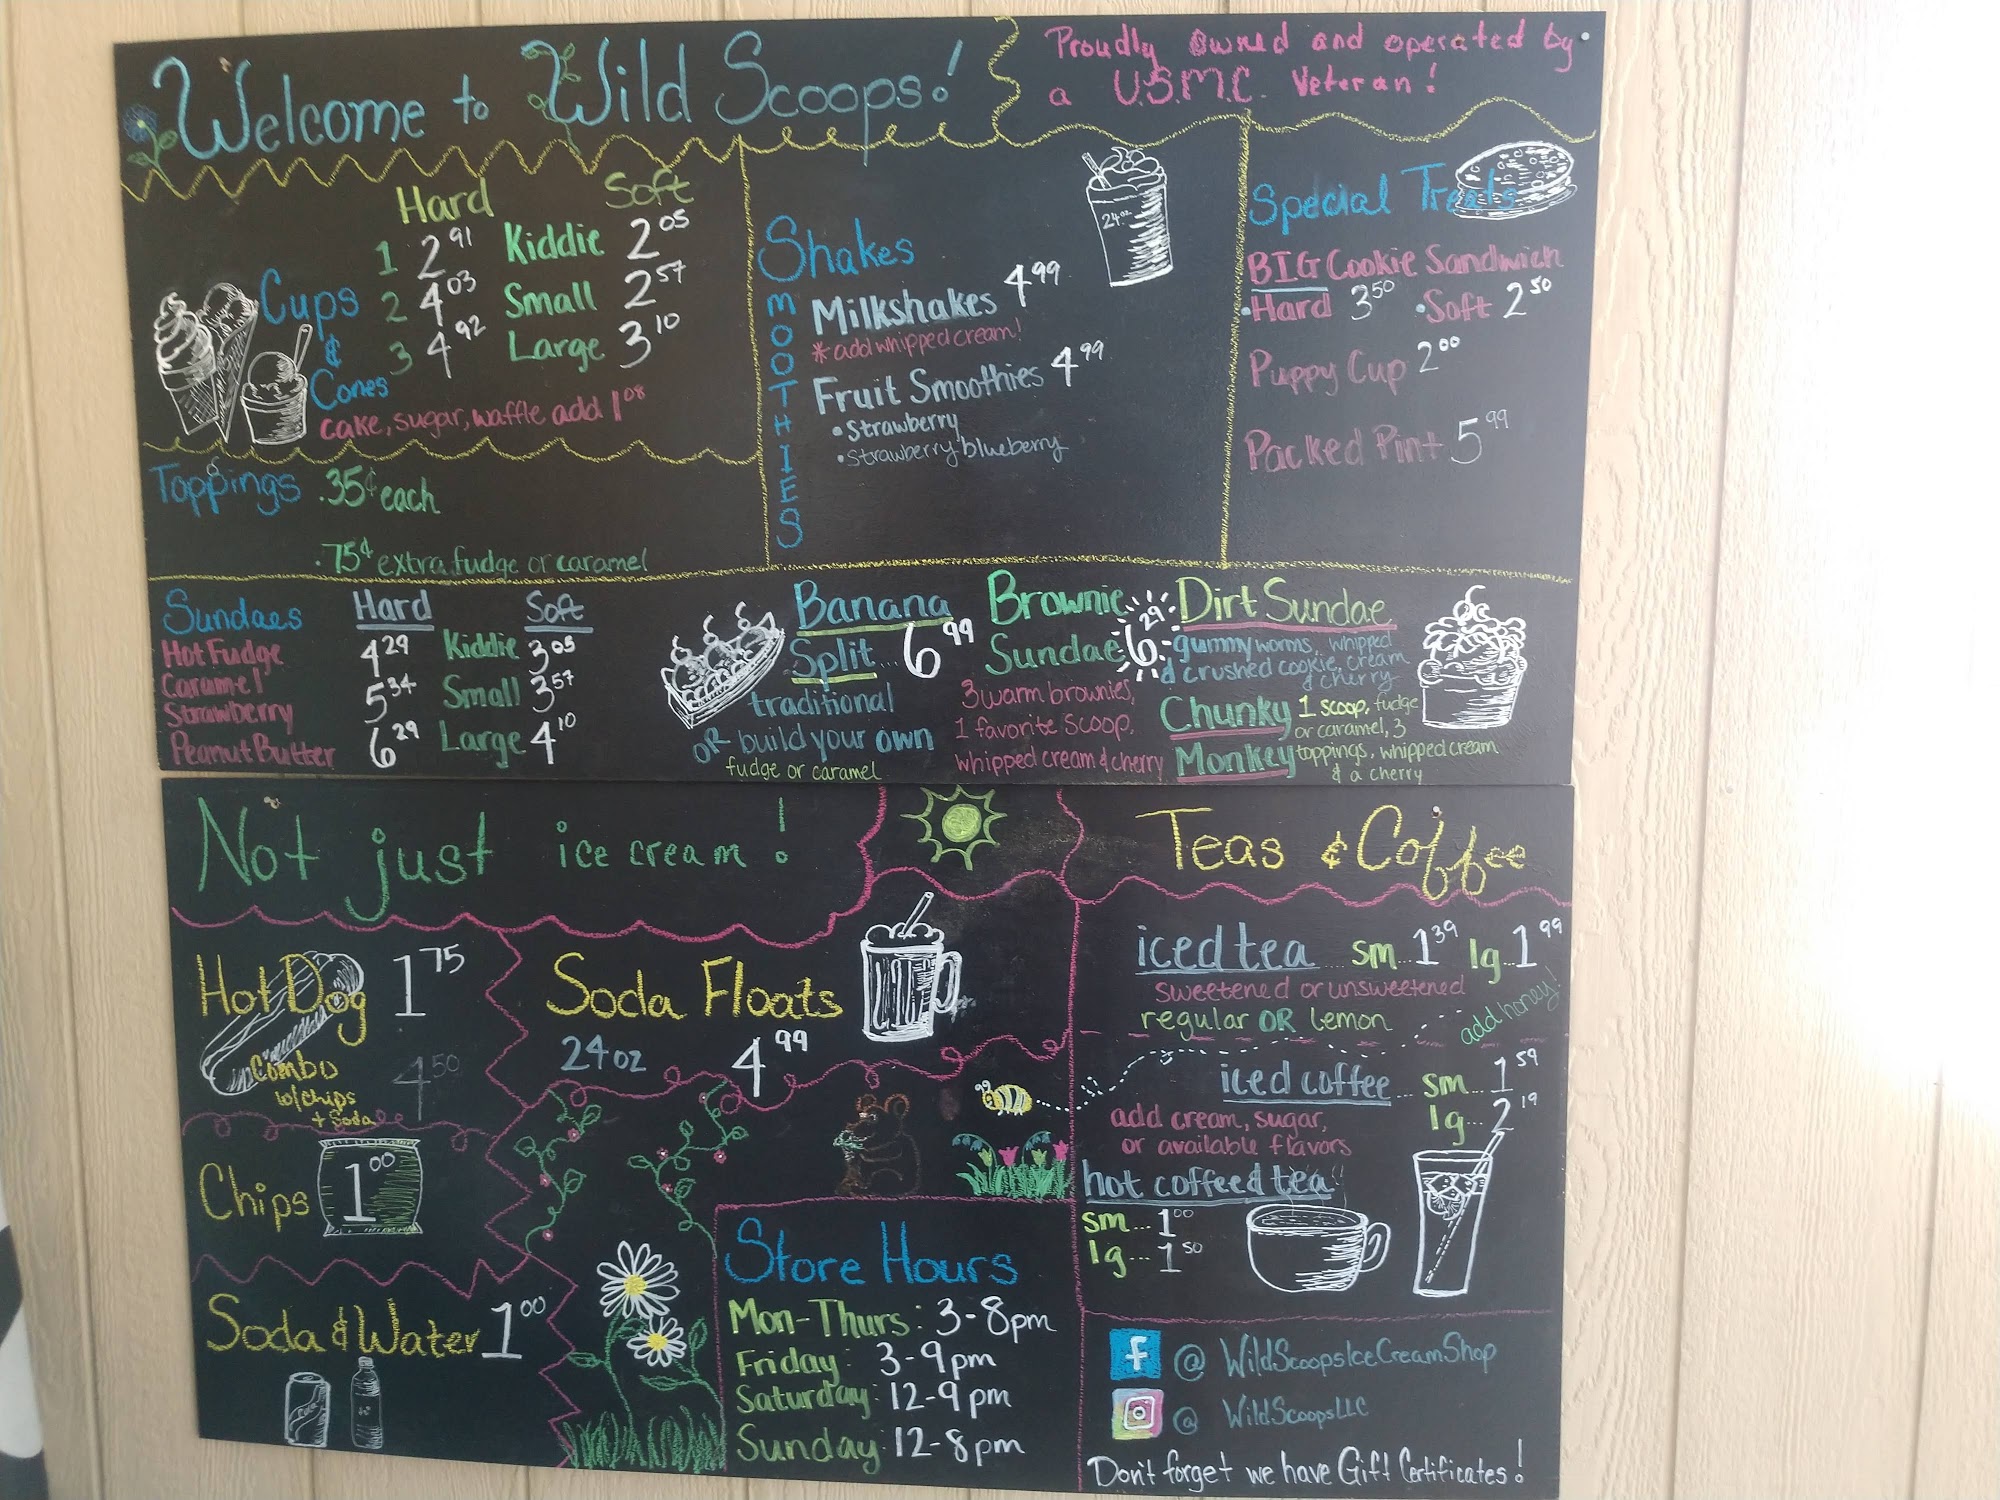 Welcome to Wild Scoops!
Proudly Owned and operated by
a U.S.M.C. Veteran!
Hard Soft
Cups
&
Cones
1 2.91 Kiddie 2.05
2 4.03 Small 2.57
3 4.92 Large 3.10
cake, sugar, waffle add 1.08
Toppings .35¢ each
.75¢ extra fudge or caramel
Shakes
SMOOTHIES
24oz
Milkshakes 4.99
* add whipped cream!
Fruit Smoothies 4.99
• Strawberry
• Strawberry blueberry
Special Treats
BIG Cookie Sandwich
• Hard 3.50 • Soft 2.50
Puppy Cup 2.00
Packed Pint 5.99
Sundaes Hard Soft
Hot Fudge 4.29 Kiddie 3.05
Caramel 5.34 Small 3.57
Strawberry
Peanut Butter 6.29 Large 4.10
Banana
Split... 6.99
traditional
OR build your own
fudge or caramel
Brownie
Sundae 6.29
3 warm brownies,
1 favorite scoop,
whipped cream & cherry
Dirt Sundae
gummy worms, whipped
& crushed cookie, cream
& cherry
Chunky 1 scoop, fudge
or caramel, 3
Monkey toppings, whipped cream
& a cherry
Not just ice cream!
Hot Dog 1.75
Combo 4.50
w/chips
+ Soda
Chips 1.00
Soda & Water 1.00
Cola
Soda Floats
24oz 4.99
Store Hours
Mon-Thurs: 3-8pm
Friday: 3-9pm
Saturday: 12-9pm
Sunday: 12-8pm
Teas & Coffee
iced tea ... sm... 1.39 lg... 1.99
sweetened or unsweetened
regular OR lemon
add honey!
iced coffee... sm... 1.59
lg... 2.19
add cream, sugar,
or available flavors
hot coffee & tea
sm... 1.00
lg... 1.50
f @ WildScoopsIceCreamShop
@ WildScoopsLLC
Don't forget we have Gift Certificates!